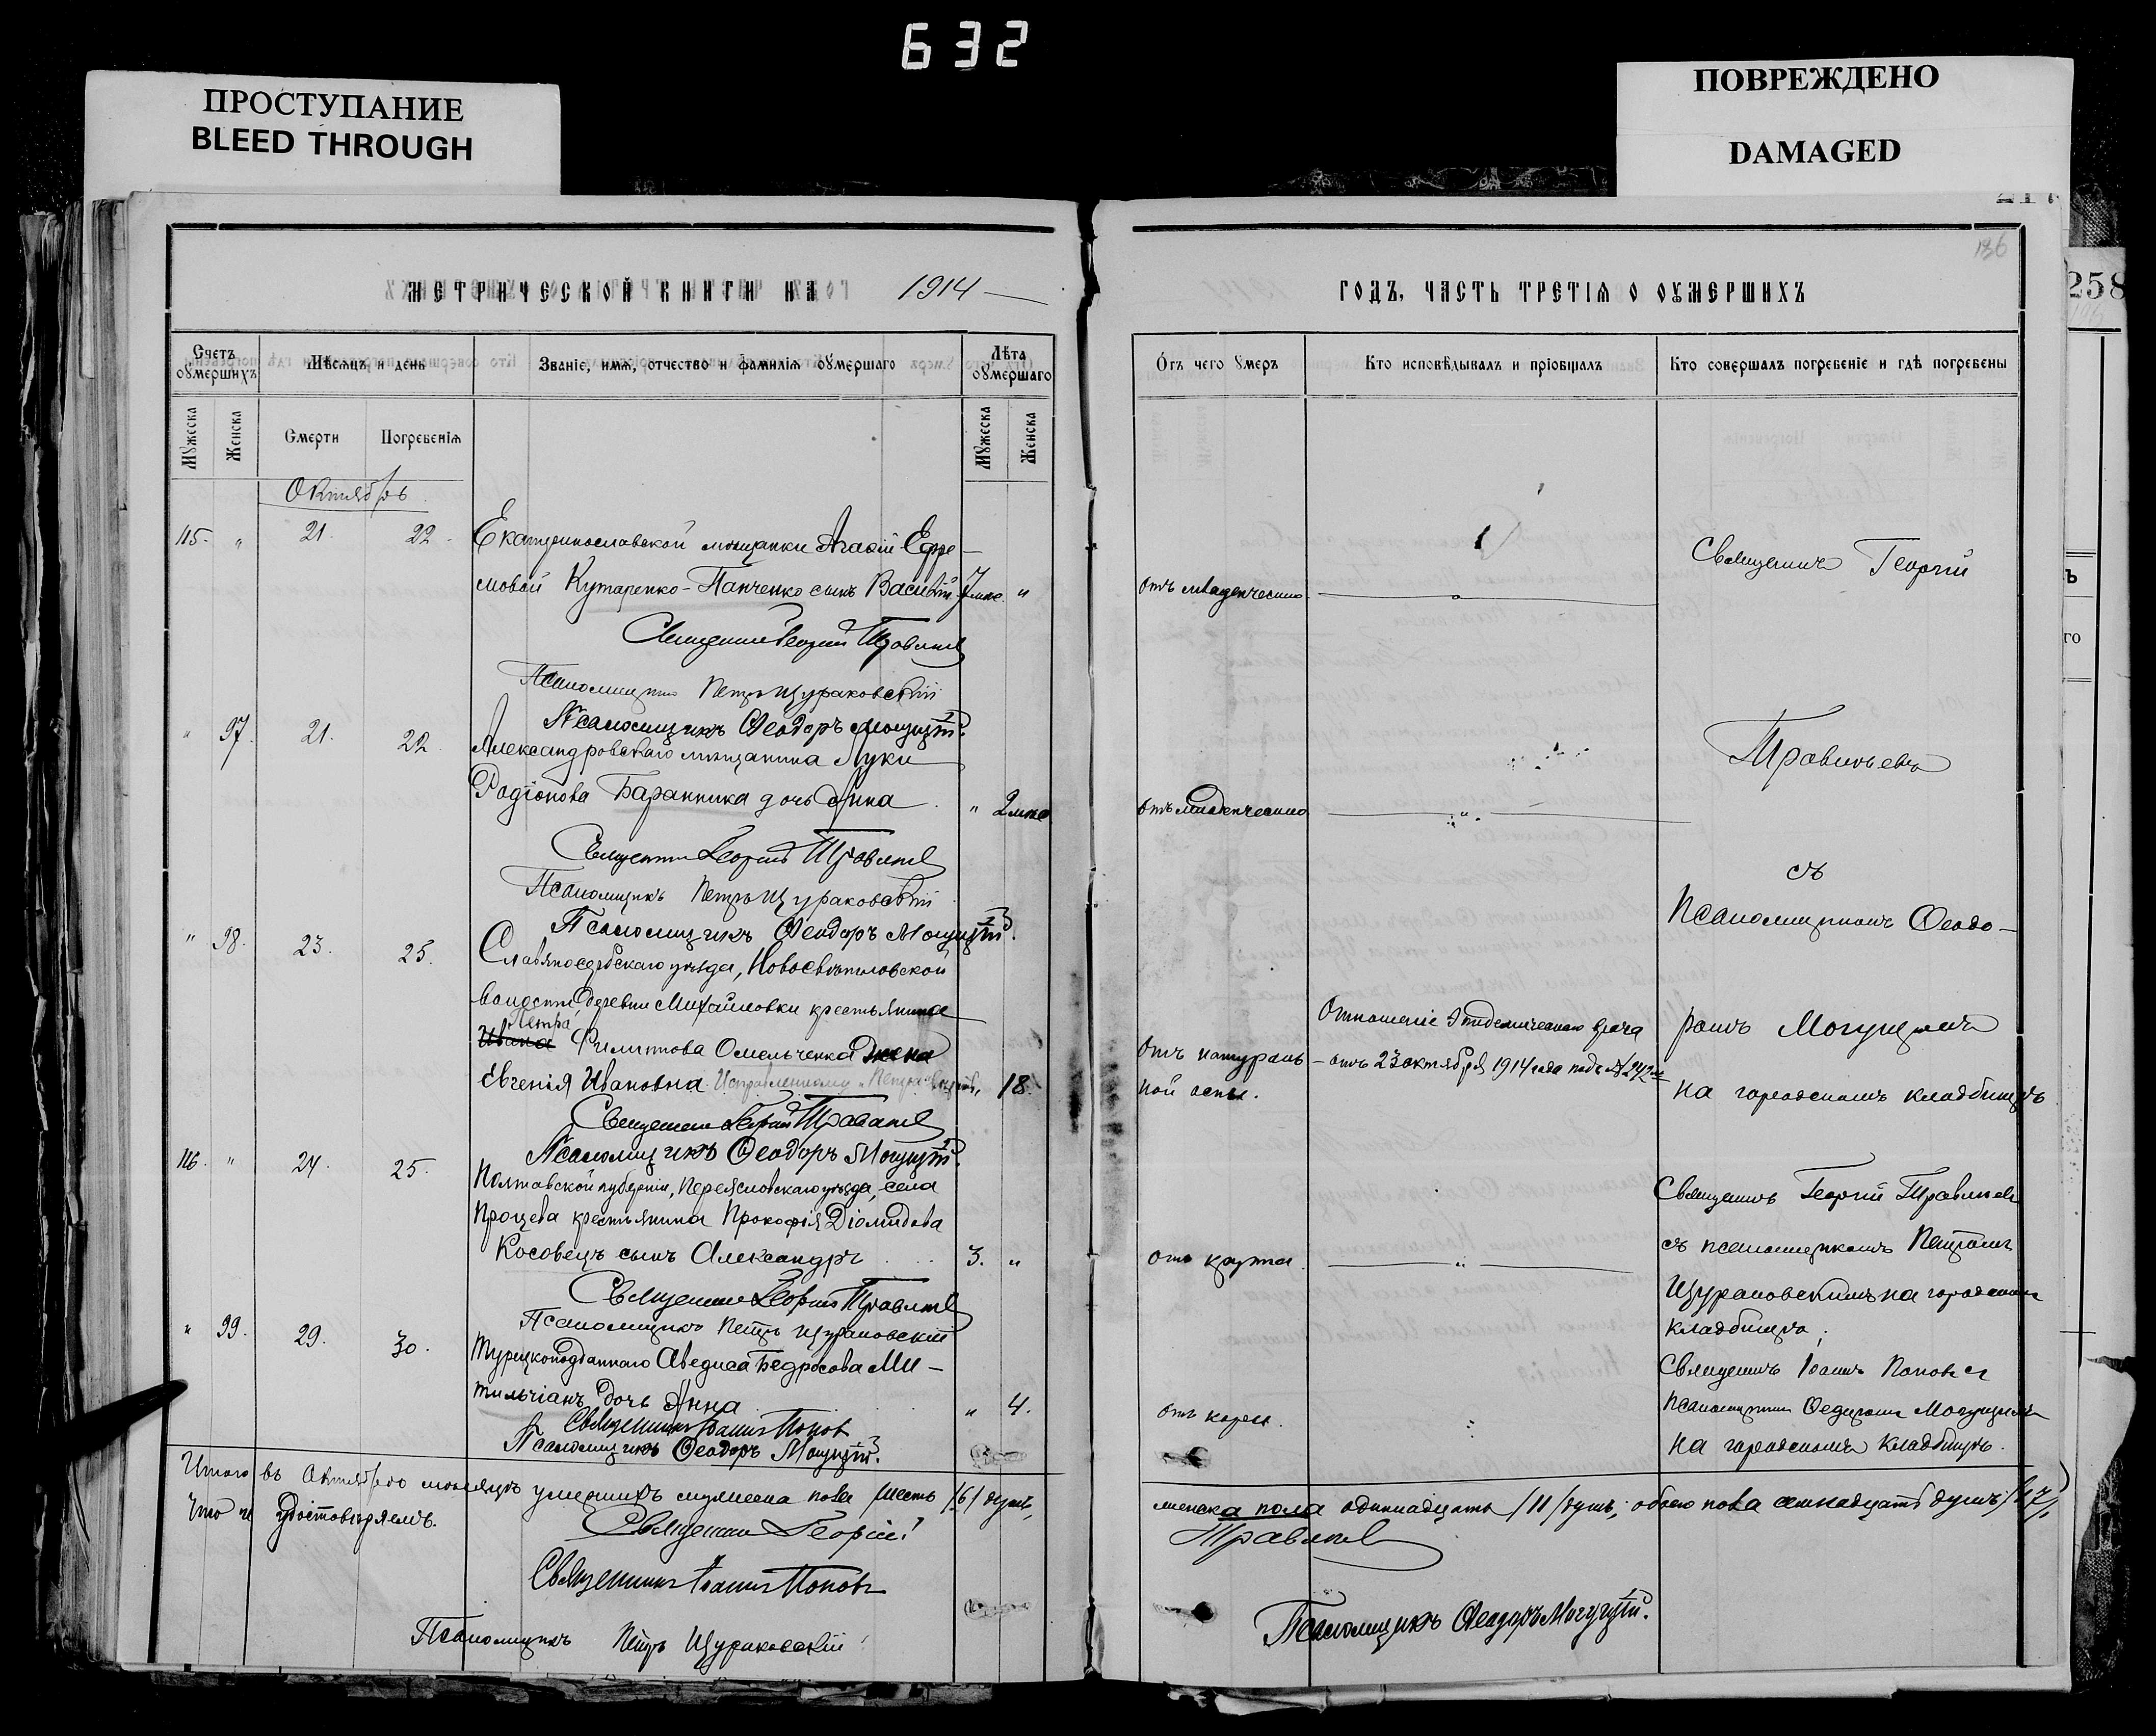 632
ПРОСТУПАНИЕ
BLEED THROUGH
ПОВРЕЖДЕНО
DAMAGED
136
258
МЕТРИЧЕСКОЙ КНИГИ НА 1914
Счетъ оумершихъ
Мѣсяцъ и день
Званіе, имя, отчество и фамилія оумершаго
Лѣта оумершаго
Мужеска
Женска
Смерти
Погребенія
Мужеска
Женска
Октябрь
115. " 21. 22. Екатеринославской мѣщанки Агафіи Ефре-
мовой Кутаренко-Панченко сынъ Василій 7 мѣс. "
Священникъ Георгій
Псаломщикъ Петръ Щураковскій
Псаломщикъ Ѳеодоръ Могуцій.
" 97. 21. 22. Александровскаго мѣщанина Луки
Родіонова Баранника дочь Анна " 2 мѣс
Священникъ Георгій
Псаломщикъ Петръ Щураковскій
Псаломщикъ Ѳеодоръ Могуцій.
" 98. 23. 25. Славяносербскаго уѣзда, Новосвѣтловской
волости, деревни Михайловки крестьянина
Петра
Ивана Филиппова Омельченка жена
Евгенія Ивановна. Исправленному "Петра" вѣрить, 18.
Священникъ Георгій
Псаломщикъ Ѳеодоръ Могуцій.
116. " 24. 25. Полтавской губерніи, Переясловскаго уѣзда, села
Процева крестьянина Прокофія Діомидова
Косовецъ сынъ Александръ 3. "
Священникъ Георгій
Псаломщикъ Петръ Щураковскій
" 99. 29. 30. Турецкоподданнаго Аведиса Бедросова Ми-
тильчіанъ дочь Анна " 4.
Священникъ Іоаннъ Поповъ
Псаломщикъ Ѳеодоръ Могуцій.
Итого въ Октябрѣ мѣсяцѣ умершихъ мужеска пола шесть /6/ душъ,
Что и удостовѣряемъ.
Священникъ Георгій
Священникъ Іоаннъ Поповъ
Псаломщикъ Петръ Щураковскій
ГОДЪ, ЧАСТЬ ТРЕТІЯ О ОУМЕРШИХЪ
Отъ чего умеръ
Кто исповѣдывалъ и пріобщалъ
Кто совершалъ погребеніе и гдѣ погребены
Священникъ Георгій
отъ младенческаго
отъ младенческаго
съ
Псаломщикомъ Ѳеодо-
Отношеніе Эпидемическаго врача
ромъ Могуцимъ
Отъ натураль-
отъ 23 октября 1914 года подъ № 242
ной оспы.
на городскомъ кладбищѣ
Священникъ Георгій
отъ крупа "
съ псаломщикомъ Петромъ
Щураковскимъ на городскомъ
кладбищѣ;
Священникъ Іоаннъ Поповъ съ
отъ кори.
псаломщикомъ Ѳедоромъ Могуцимъ
на городскомъ кладбищѣ.
женска пола одиннадцать /11/ душъ, обоего пола семнадцать душъ /17/.
Псаломщикъ Ѳеодоръ Могуцій.